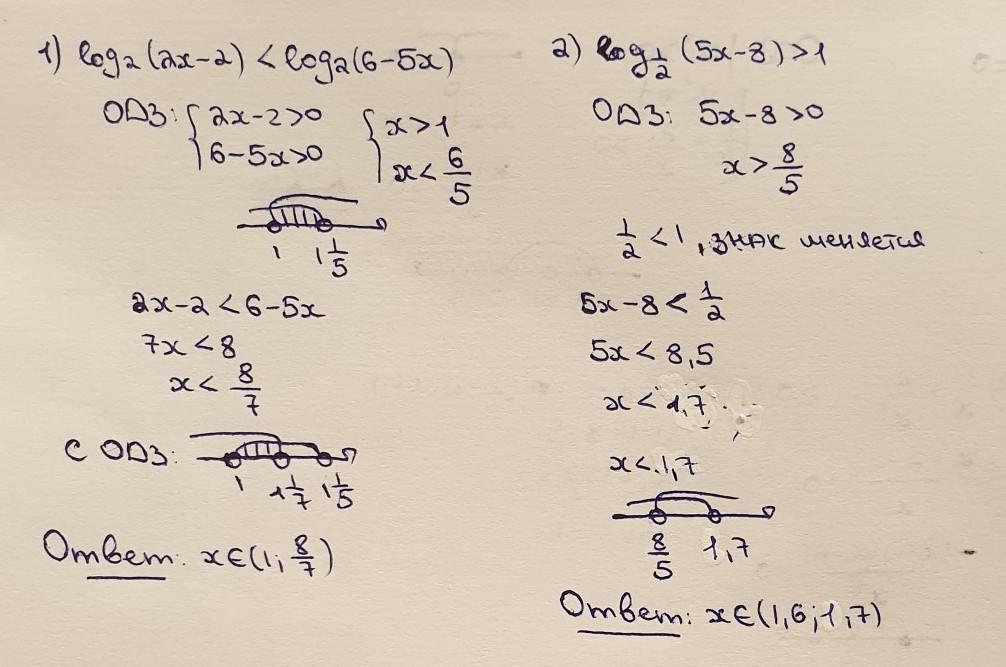 1) log₂(2x-2) < log₂(6-5x)
ОДЗ: { 2x-2>0 { x>1
6-5x>0 x< 6/5
1 1 1/5
2x-2 < 6-5x
7x < 8
x < 8/7
С ОДЗ:
1 1 1/7 1 1/5
Ответ: x∈(1; 8/7)
2) log_1/2 (5x-8) >1
ОДЗ: 5x-8 >0
x > 8/5
1/2 < 1, знак меняется
5x-8 < 1/2
5x < 8,5
x < 1,7
x < 1,7
8/5 1,7
Ответ: x∈(1,6; 1,7)